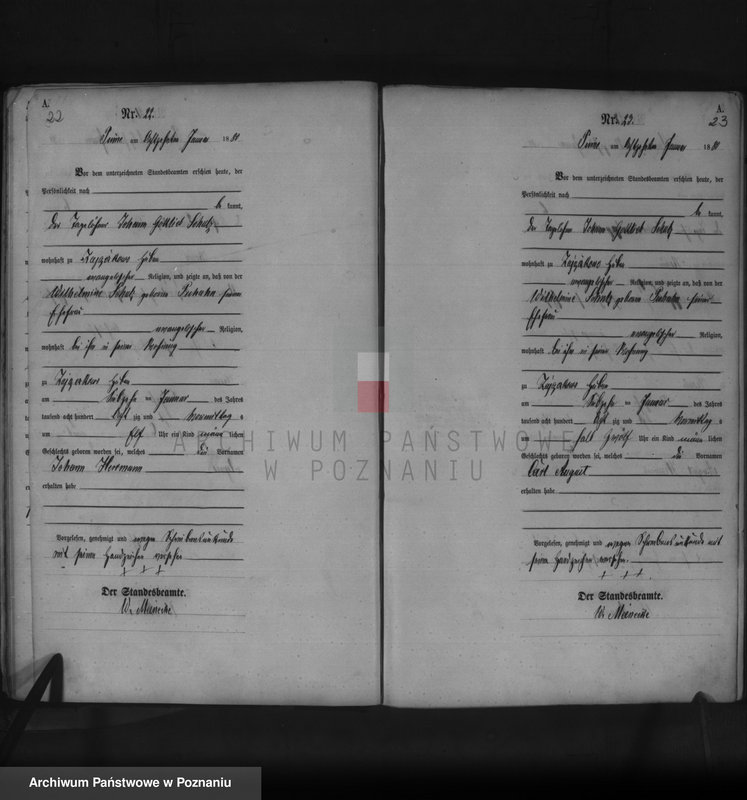 A.
22
Nr. 22.
am Januar 1881
Vor dem unterzeichneten Standesbeamten erschien heute, der
Persönlichkeit nach
be kannt,
der Tagelöhner Johann Gottlieb Schulz
wohnhaft zu Huben
evangelischer Religion, und zeigte an, daß von der
Wilhelmine Schulz geborene seiner
Ehefrau
evangelischer Religion,
wohnhaft bei ihm in seiner Wohnung
zu Huben
am Januar des Jahres
tausend acht hundert acht zig und Vormittag s
um elf Uhr ein Kind männ lichen
Geschlechts geboren worden sei, welches die Vornamen
Johann Hermann
erhalten habe
Vorgelesen, genehmigt und wegen Schreibensunkunde
mit seinem Handzeichen versehen
+ + +
Der Standesbeamte.
A.
23
Nr. 23.
am Januar 1881
Vor dem unterzeichneten Standesbeamten erschien heute, der
Persönlichkeit nach
be kannt,
der Tagelöhner Johann Gottlieb Schulz
wohnhaft zu Huben
evangelischer Religion, und zeigte an, daß von der
Wilhelmine Schulz geborene seiner
Ehefrau
evangelischer Religion,
wohnhaft bei ihm in seiner Wohnung
zu Huben
am Januar des Jahres
tausend acht hundert acht zig und Vormittag s
um halb zwölf Uhr ein Kind männ lichen
Geschlechts geboren worden sei, welches die Vornamen
Carl August
erhalten habe
Vorgelesen, genehmigt und wegen Schreibensunkunde mit
seinem Handzeichen versehen.
+ + +.
Der Standesbeamte.
ARCHIWUM PAŃSTWOWE
W POZNANIU
Archiwum Państwowe w Poznaniu